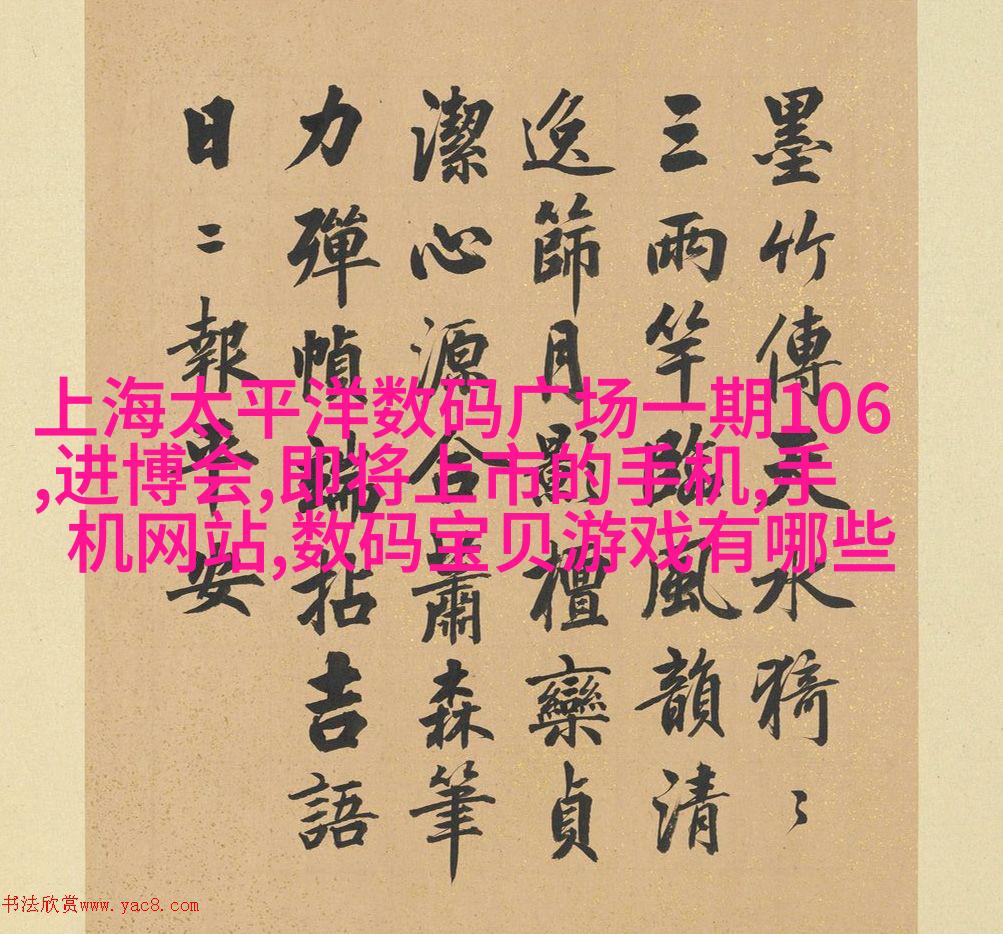 墨竹傳天水猗〻
三兩竿臨風韻清
逸篩月影檀欒貞
潔心源合蕭森筆
力彈幀端拈吉語
日二報平安
上海太平洋数码广场一期106
,进博会,即将上市的手机,手
机网站,数码宝贝游戏有哪些
书法欣赏www.yac8.com